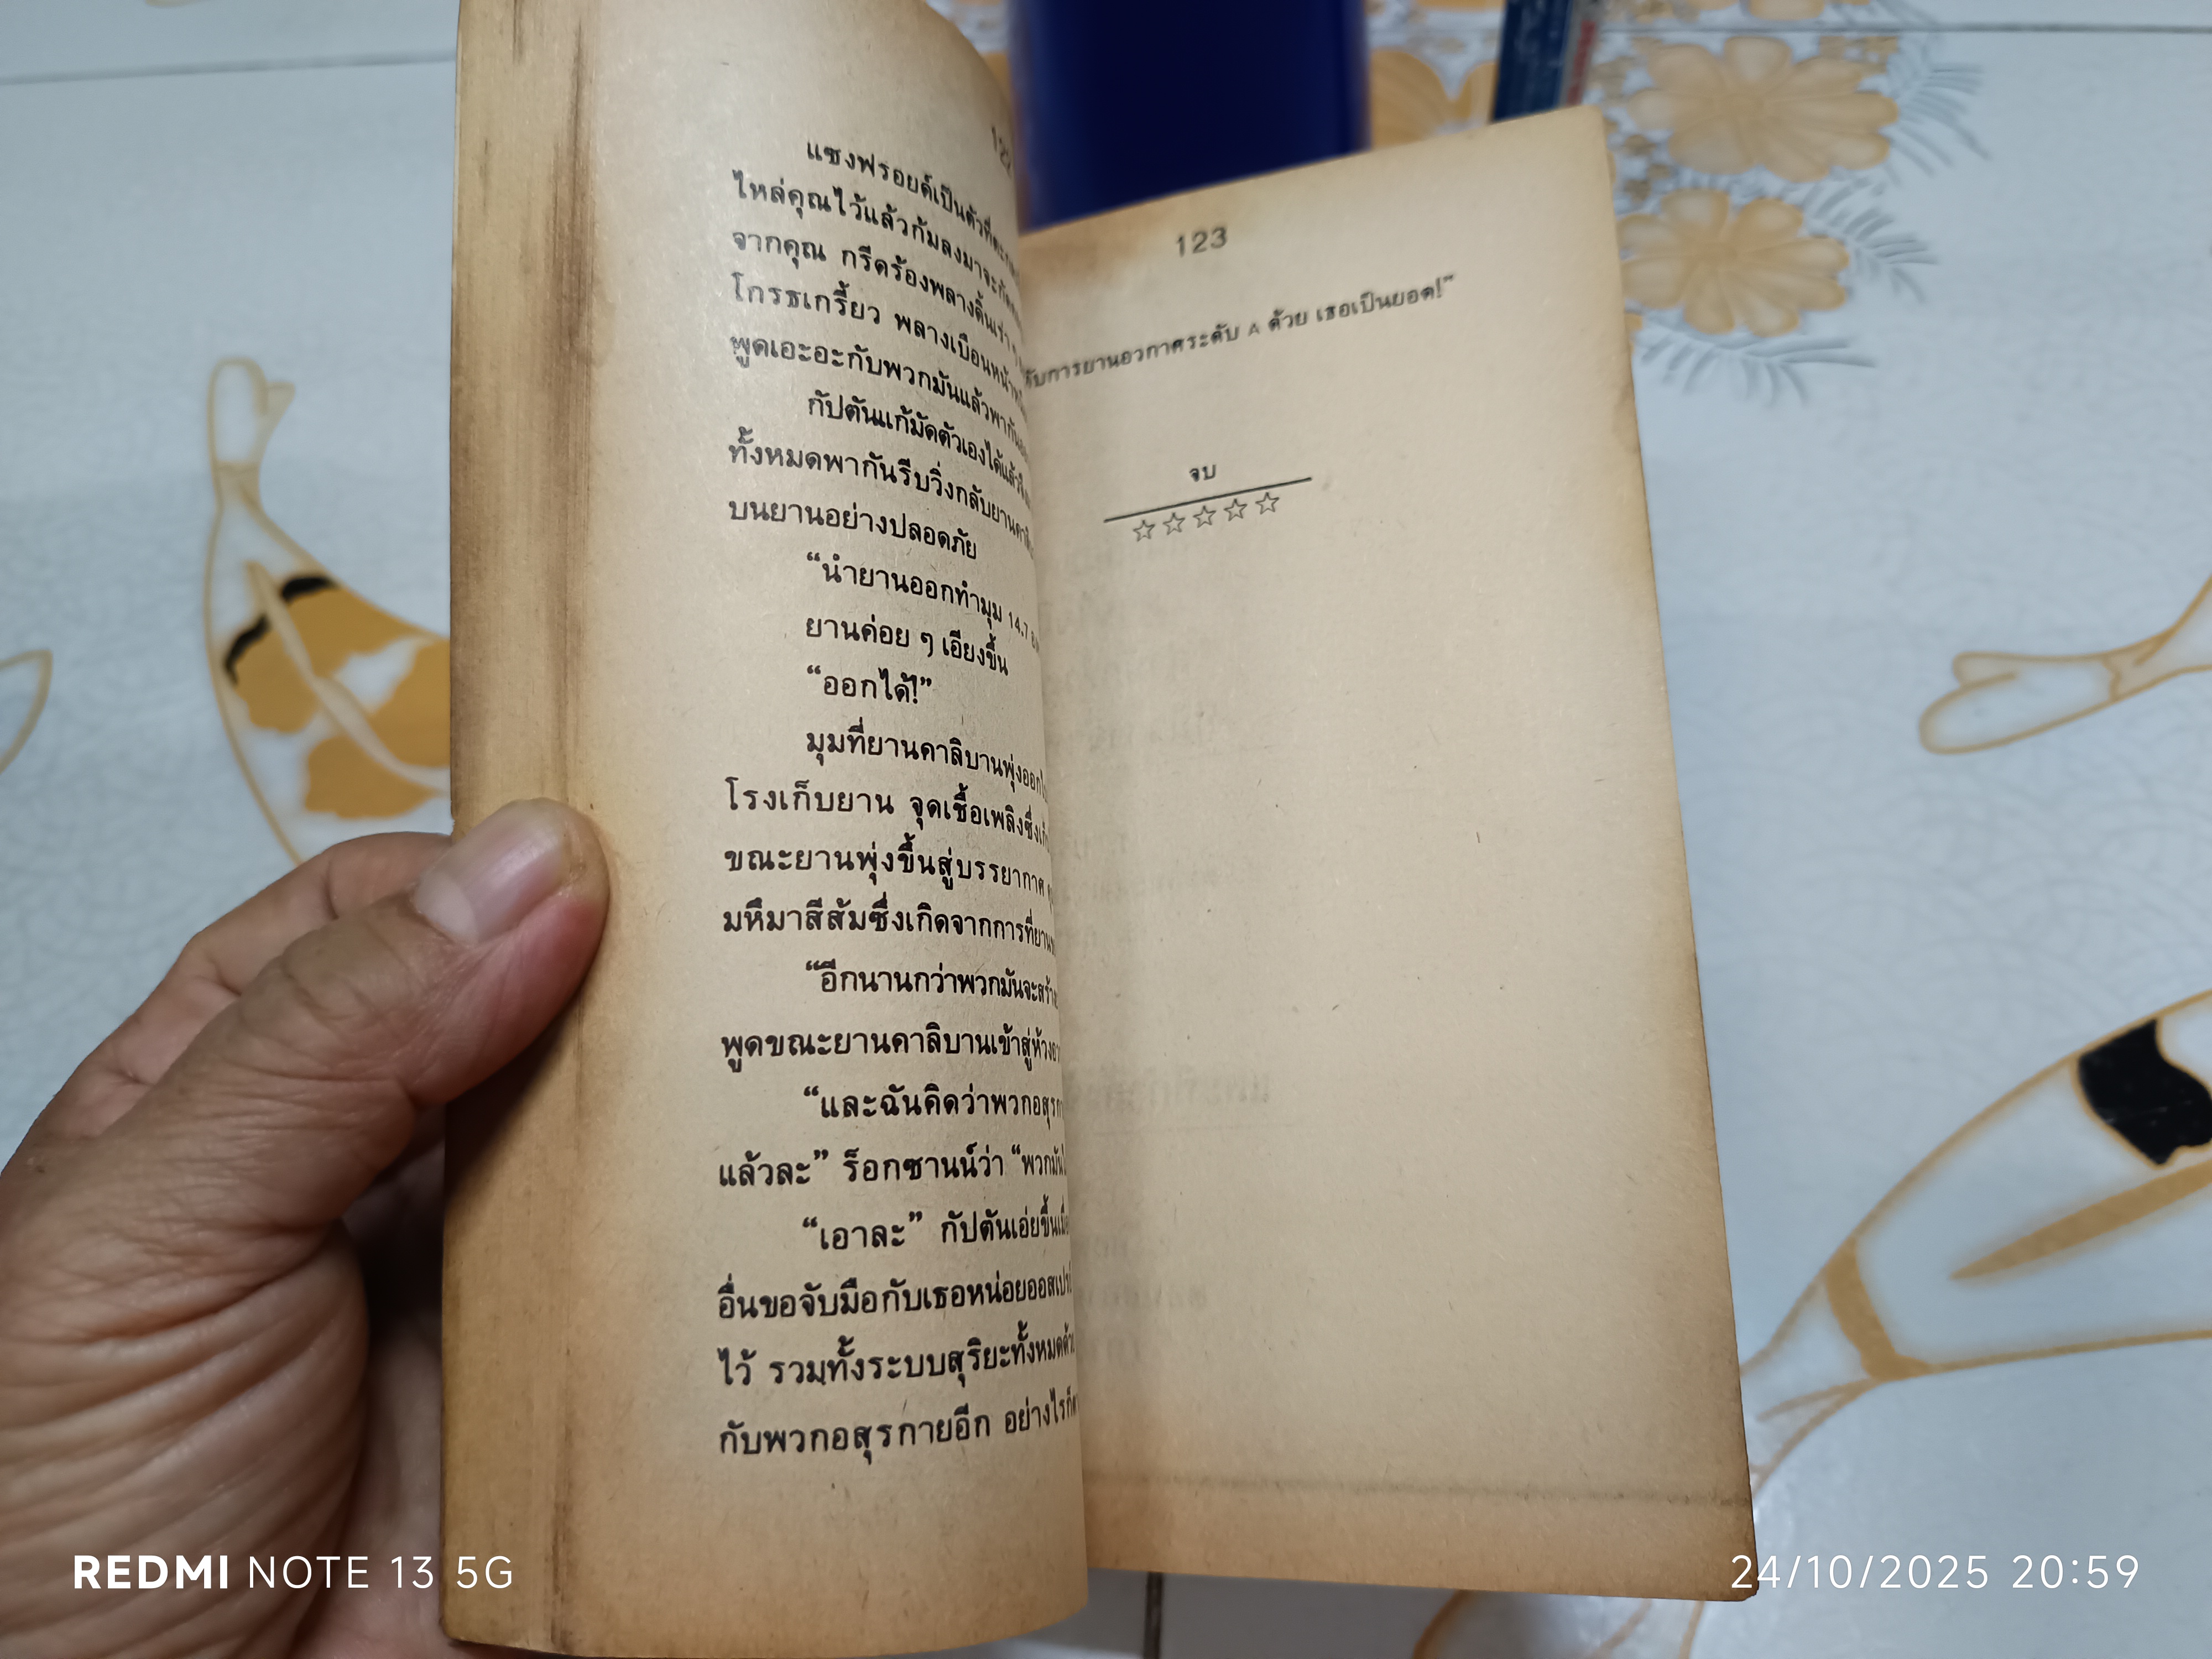 122
แซงฟรอยด์เป็นตัวที่
ไหล่คุณไว้แล้วก้มลงมาจะกัด
จากคุณ กรีดร้องพลางดิ้นเร่า ๆ
โกรธเกรี้ยว พลางเบือนหน้า
พูดเอะอะกับพวกมันแล้วพากัน
กัปตันแก้มัดตัวเองได้แล้ว
ทั้งหมดพากันรีบวิ่งกลับยานคาลิ
บนยานอย่างปลอดภัย
“นำยานออกทำมุม 14.7
ยานค่อย ๆ เอียงขึ้น
“ออกได้!”
มุมที่ยานคาลิบานพุ่งออก
โรงเก็บยาน จุดเชื้อเพลิงซึ่ง
ขณะยานพุ่งขึ้นสู่บรรยากาศ
มหึมาสีส้มซึ่งเกิดจากการที่ยาน
“อีกนานกว่าพวกมันจะสร้าง
พูดขณะยานคาลิบานเข้าสู่ห้วง
“และฉันคิดว่าพวกอสุรกา
แล้วละ” ร็อกซานน์ว่า “พวกมัน
“เอาละ” กัปตันเอ่ยขึ้น
อื่นขอจับมือกับเธอหน่อยออสเปร
ไว้ รวมทั้งระบบสุริยะทั้งหมดด้วย
กับพวกอสุรกายอีก อย่างไรก็
123
ับการยานอวกาศระดับ A ด้วย เธอเป็นยอด!”
จบ
☆☆☆☆☆
REDMI NOTE 13 5G
24/10/2025 20:59